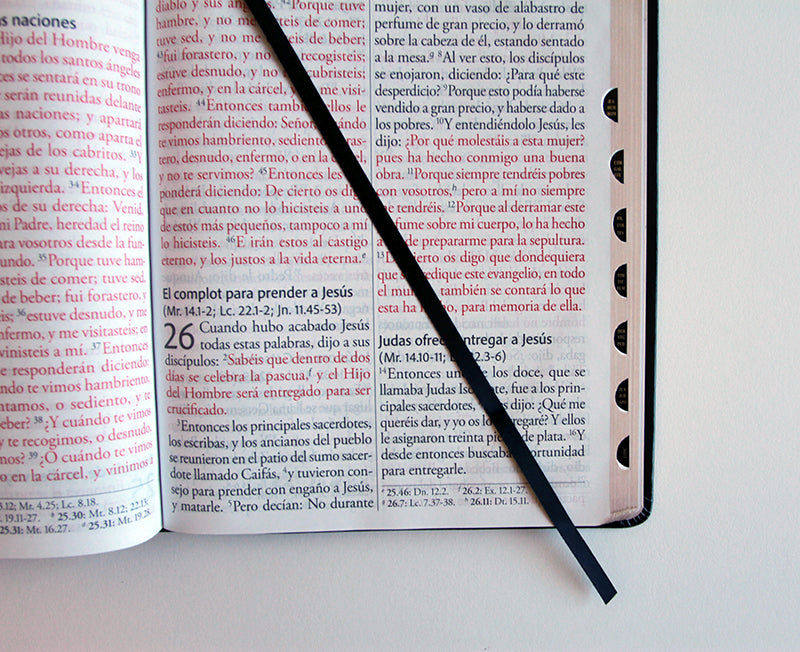 as naciones
Hijo del Hombre venga
todos los santos ángeles
es se sentará en su trono
serán reunidas delante
as naciones; y apartará
os otros, como aparta el
ejas de los cabritos. 33Y
vejas a su derecha, y los
izquierda. 34Entonces el
os de su derecha: Venid,
mi Padre, heredad el reino
ara vosotros desde la fun-
undo. 35Porque tuve ham-
isteis de comer; tuve sed,
de beber; fui forastero, y
36estuve desnudo, y me
enfermo, y me visitasteis; en
vinisteis a mí. 37Entonces
e responderán diciendo:
do te vimos hambriento,
ntamos, o sediento, y te
eber? 38¿Y cuándo te vimos
y te recogimos, o desnudo,
mos? 39¿O cuándo te vimos
o en la cárcel, y vinimos a
3.12; Mr. 4.25; Lc. 8.18.
19.11-27. b 25.30: Mt. 8.12; 22.13
25.31: Mt. 16.27. d 25.31: Mt. 19.28.
diablo y sus 42Porque tuve
hambre, y no me disteis de comer;
tuve sed, y no me disteis de beber;
43fui forastero, y no me recogisteis;
estuve desnudo, y no me cubristeis;
enfermo, y en la cárcel, y no me visi-
tasteis. 44Entonces también ellos le
responderán diciendo: Señor, ¿cuándo
te vimos hambriento, sediento, foras-
tero, desnudo, enfermo, o en la cárcel,
y no te servimos? 45Entonces les res-
ponderá diciendo: De cierto os digo
que en cuanto no lo hicisteis a uno
de estos más pequeños, tampoco a mí
lo hicisteis. 46E irán estos al castigo
eterno, y los justos a la vida eterna.e
El complot para prender a Jesús
(Mr. 14.1-2; Lc. 22.1-2; Jn. 11.45-53)
26 Cuando hubo acabado Jesús
todas estas palabras, dijo a sus
discípulos: 2Sabéis que dentro de dos
días se celebra la pascua,f y el Hijo
del Hombre será entregado para ser
crucificado.
3Entonces los principales sacerdotes,
los escribas, y los ancianos del pueblo
se reunieron en el patio del sumo sacer-
dote llamado Caifás, 4y tuvieron con-
sejo para prender con engaño a Jesús,
y matarle. 5Pero decían: No durante
mujer, con un vaso de alabastro de
perfume de gran precio, y lo derramó
sobre la cabeza de él, estando sentado
a la mesa.g 8Al ver esto, los discípulos
se enojaron, diciendo: ¿Para qué este
desperdicio? 9Porque esto podía haberse
vendido a gran precio, y haberse dado a
los pobres. 10Y entendiéndolo Jesús, les
dijo: ¿Por qué molestáis a esta mujer?
pues ha hecho conmigo una buena
obra. 11Porque siempre tendréis pobres
con vosotros,h pero a mí no siempre
me tendréis. 12Porque al derramar este
perfume sobre mi cuerpo, lo ha hecho
a fin de prepararme para la sepultura.
13De cierto os digo que dondequiera
que se predique este evangelio, en todo
el mundo, también se contará lo que
esta ha hecho, para memoria de ella.
Judas ofrece entregar a Jesús
(Mr. 14.10-11; Lc. 22.3-6)
14Entonces uno de los doce, que se
llamaba Judas Iscariote, fue a los prin-
cipales sacerdotes, 15y les dijo: ¿Qué me
queréis dar, y yo os lo entregaré? Y ellos
le asignaron treinta piezas de plata. 16Y
desde entonces buscaba oportunidad
para entregarle.
e 25.46: Dn. 12.2. f 26.2: Ex. 12.1-27.
g 26.7: Lc. 7.37-38. h 26.11: Dt. 15.11.